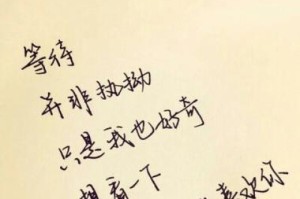 等待
并非执拗
只是我也好奇
想看一下
喜欢你